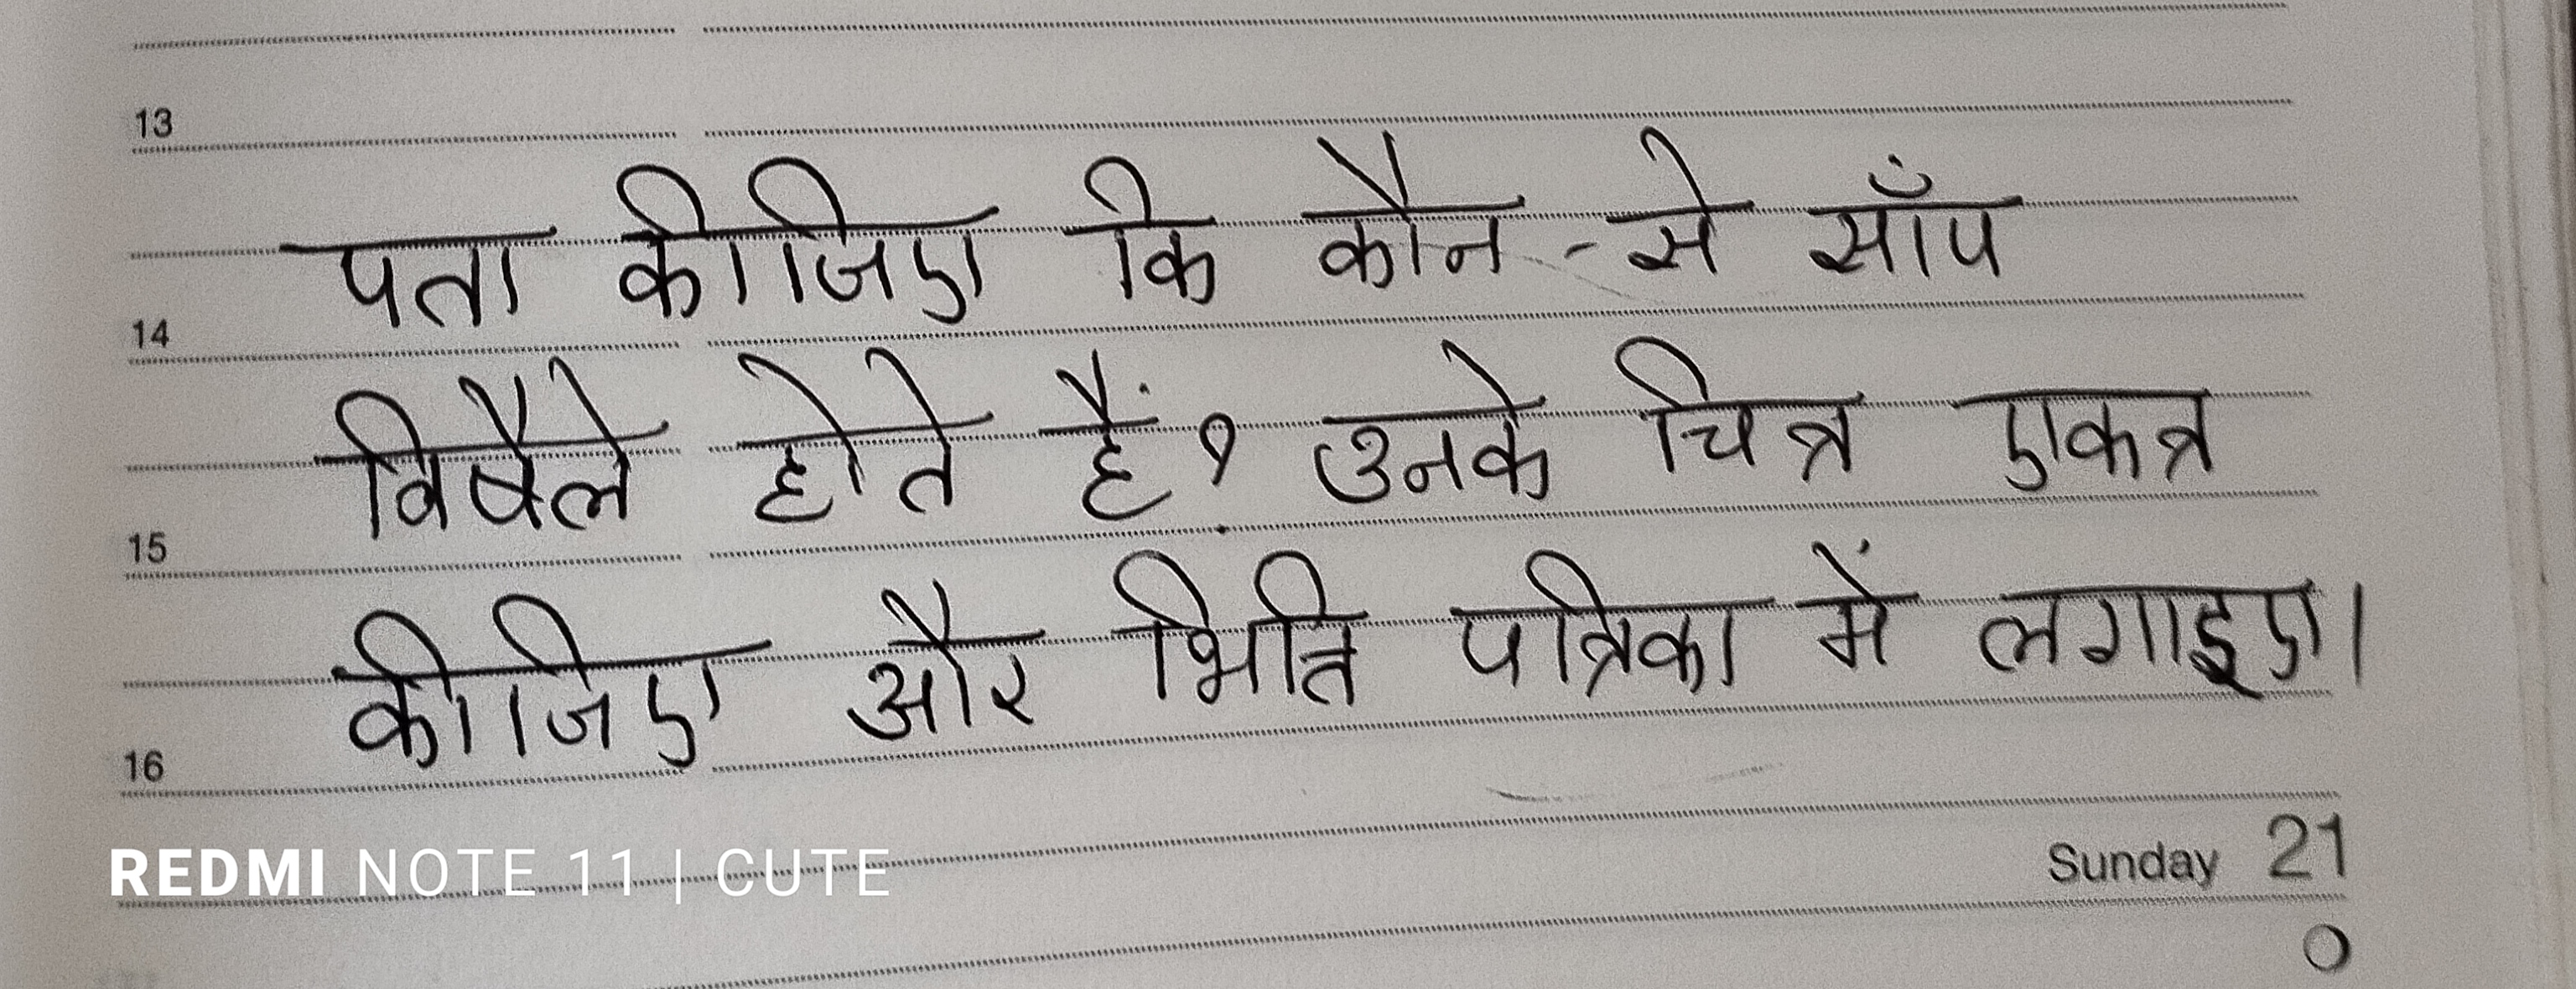 13
पता कीजिए कि कौन-से साँप
14
विषैले होते हैं? उनके चित्र एकत्र
15
कीजिए और भित्ति पत्रिका में लगाइए।
16
REDMI NOTE 11 | CUTE
Sunday 21